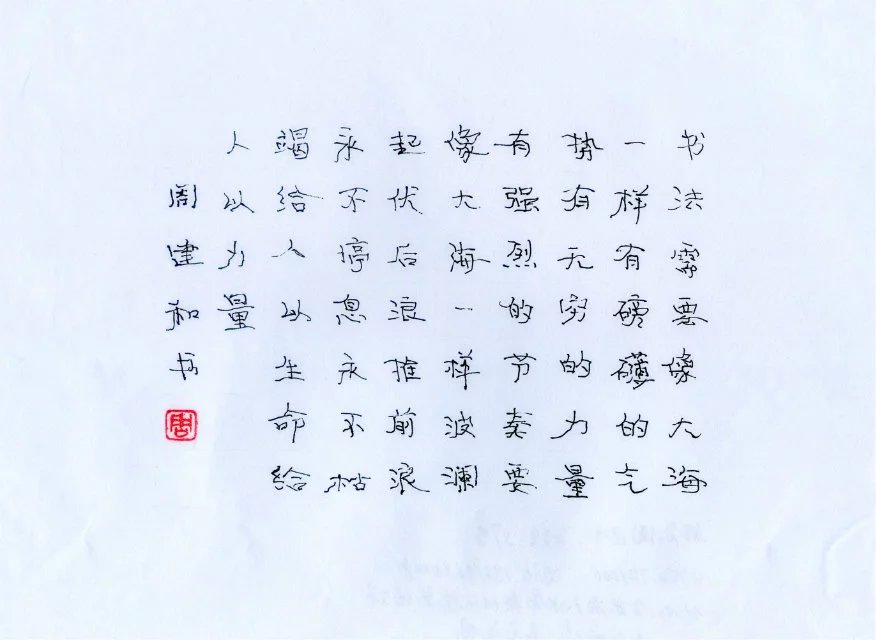 书法需要像大海
一样有磅礴的气
势有无穷的力量
有强烈的节奏要
像大海一样波澜
起伏后浪推前浪
永不停息永不枯
竭给人以生命给
人以力量
周建和书
周